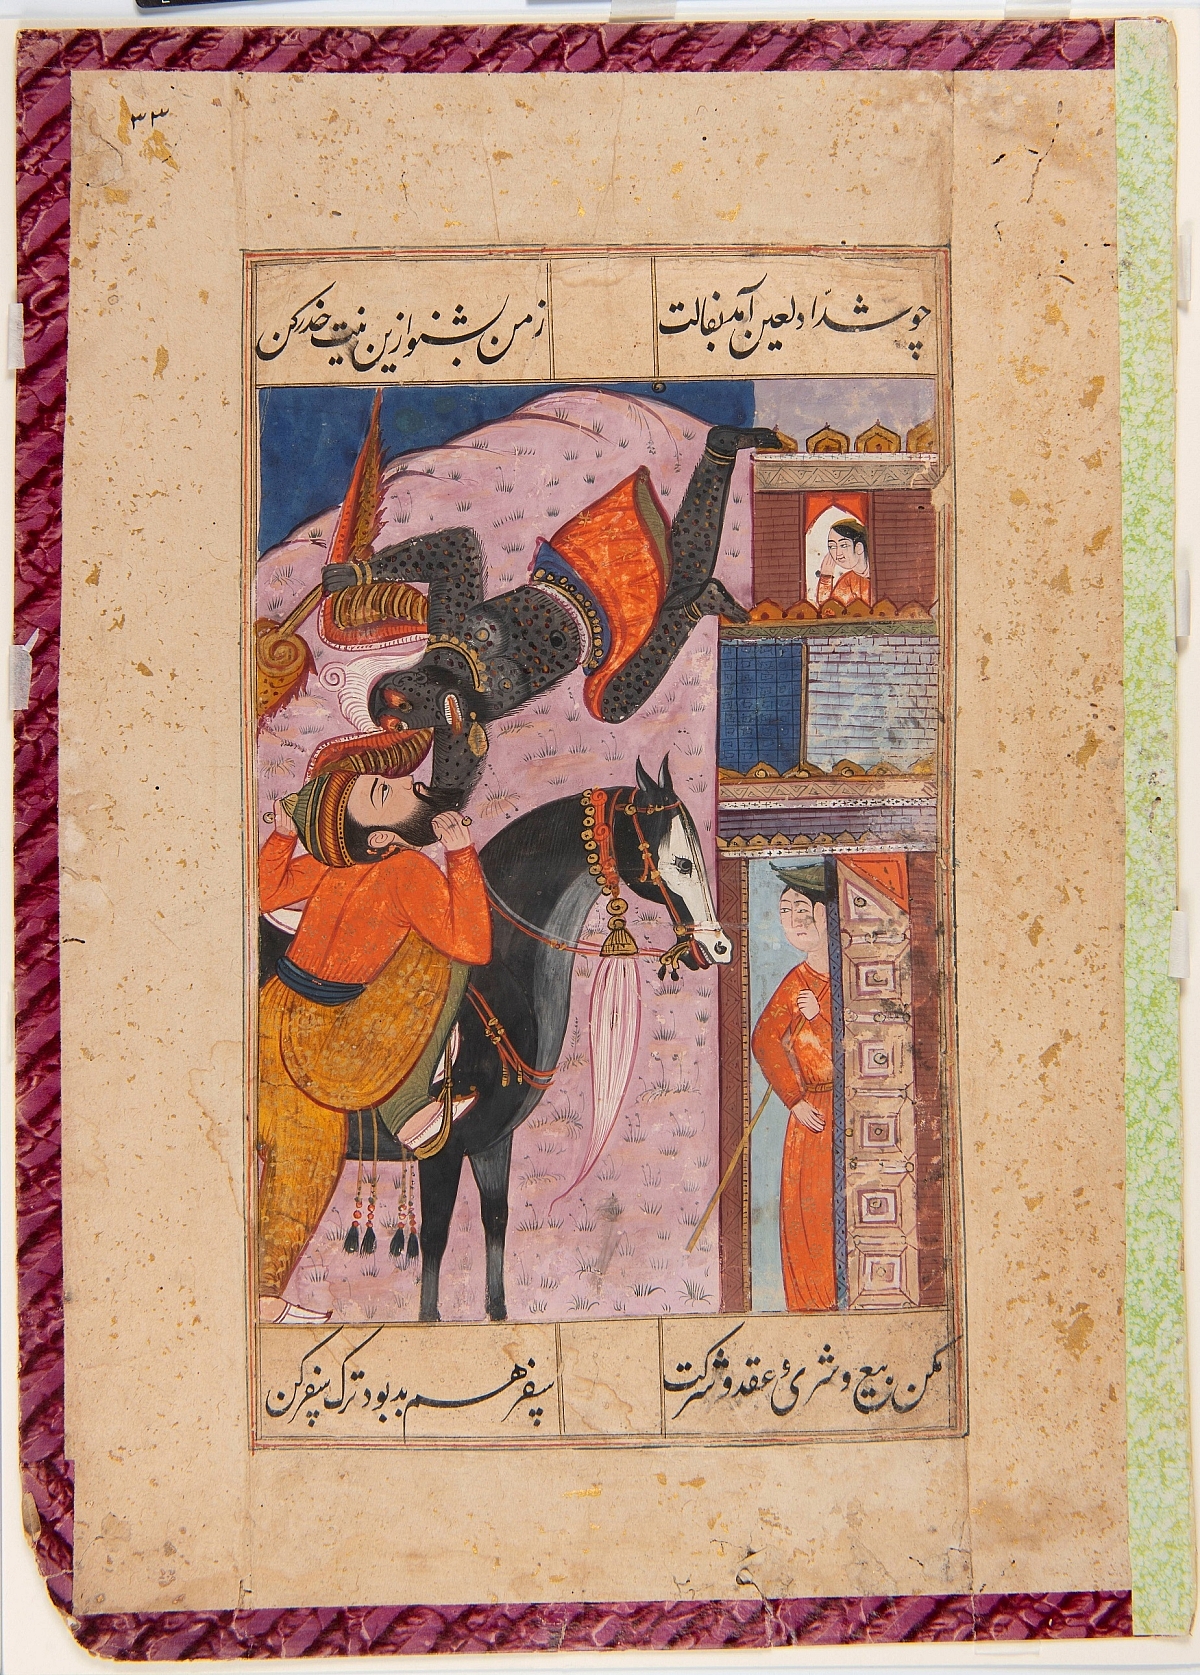 ۳۳
چو شدّاد لعین آمد بفالت
ز من بشنو ازین نیت حذر کن
مکن بیع و شری و عقد و شرکت
سفر هم بد بود ترک سفر کن